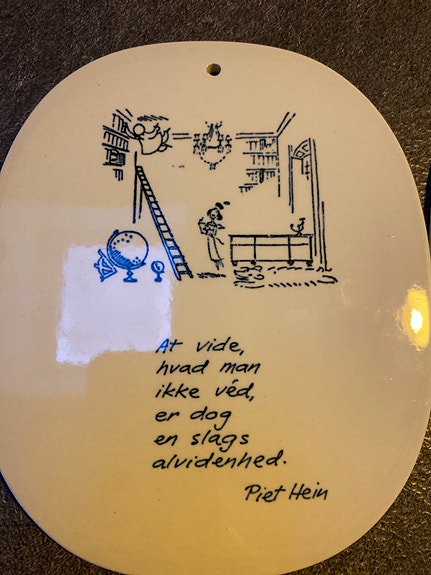 At vide,
hvad man
ikke véd,
er dog
en slags
alvidenhed.
Piet Hein